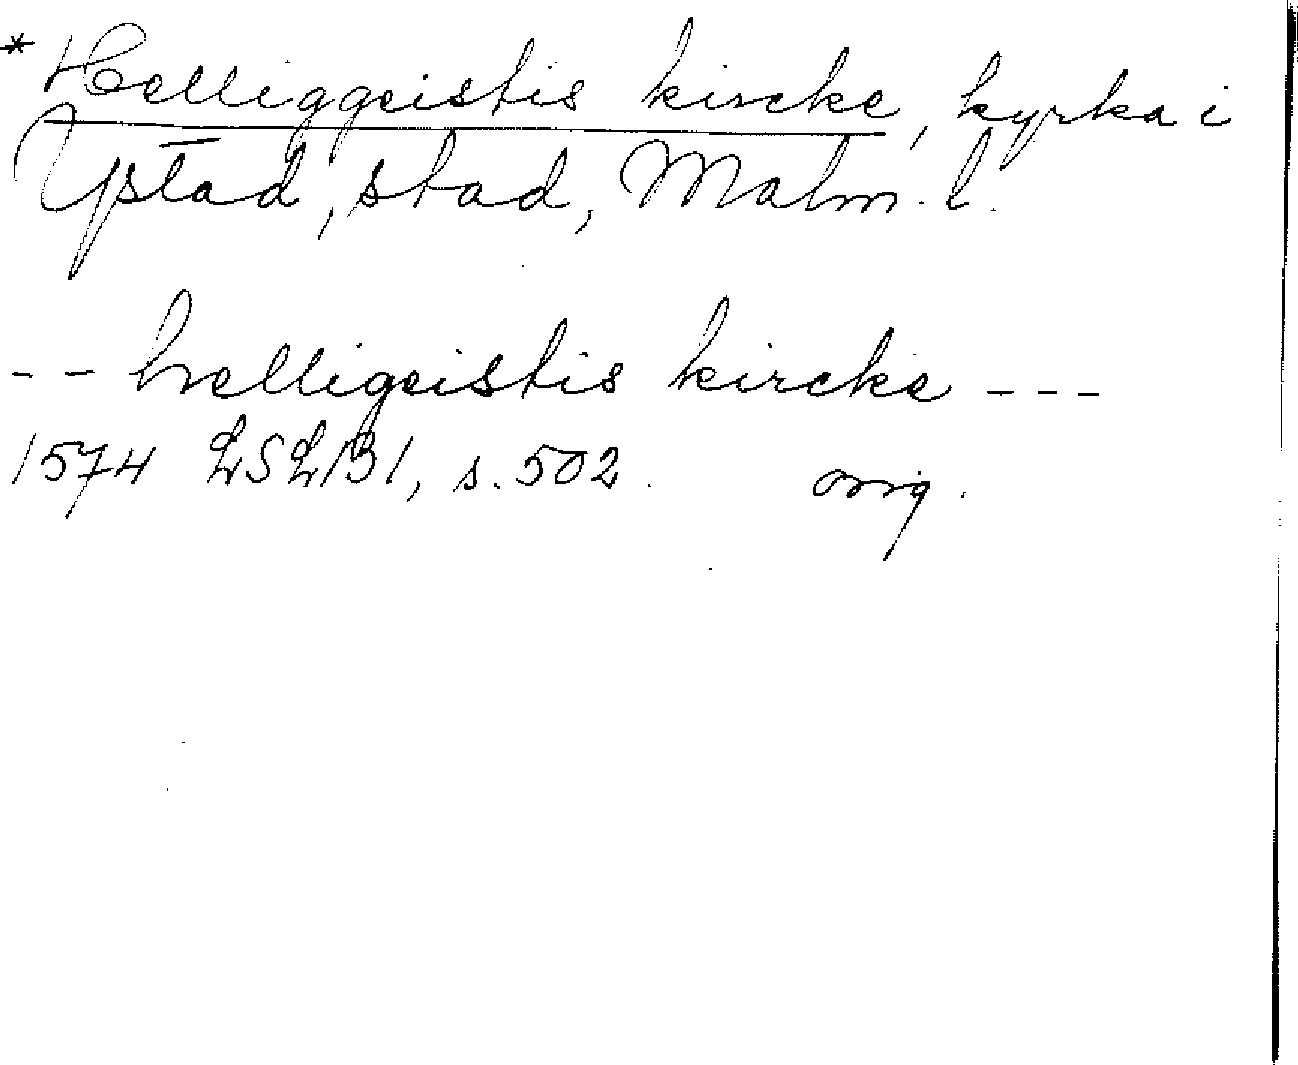 * Helliggeistis kircke, kyrka i
Ystad, stad, Malm. l.
-- helligeistis kircke ---
1574 LSLB1, s. 502. orig.